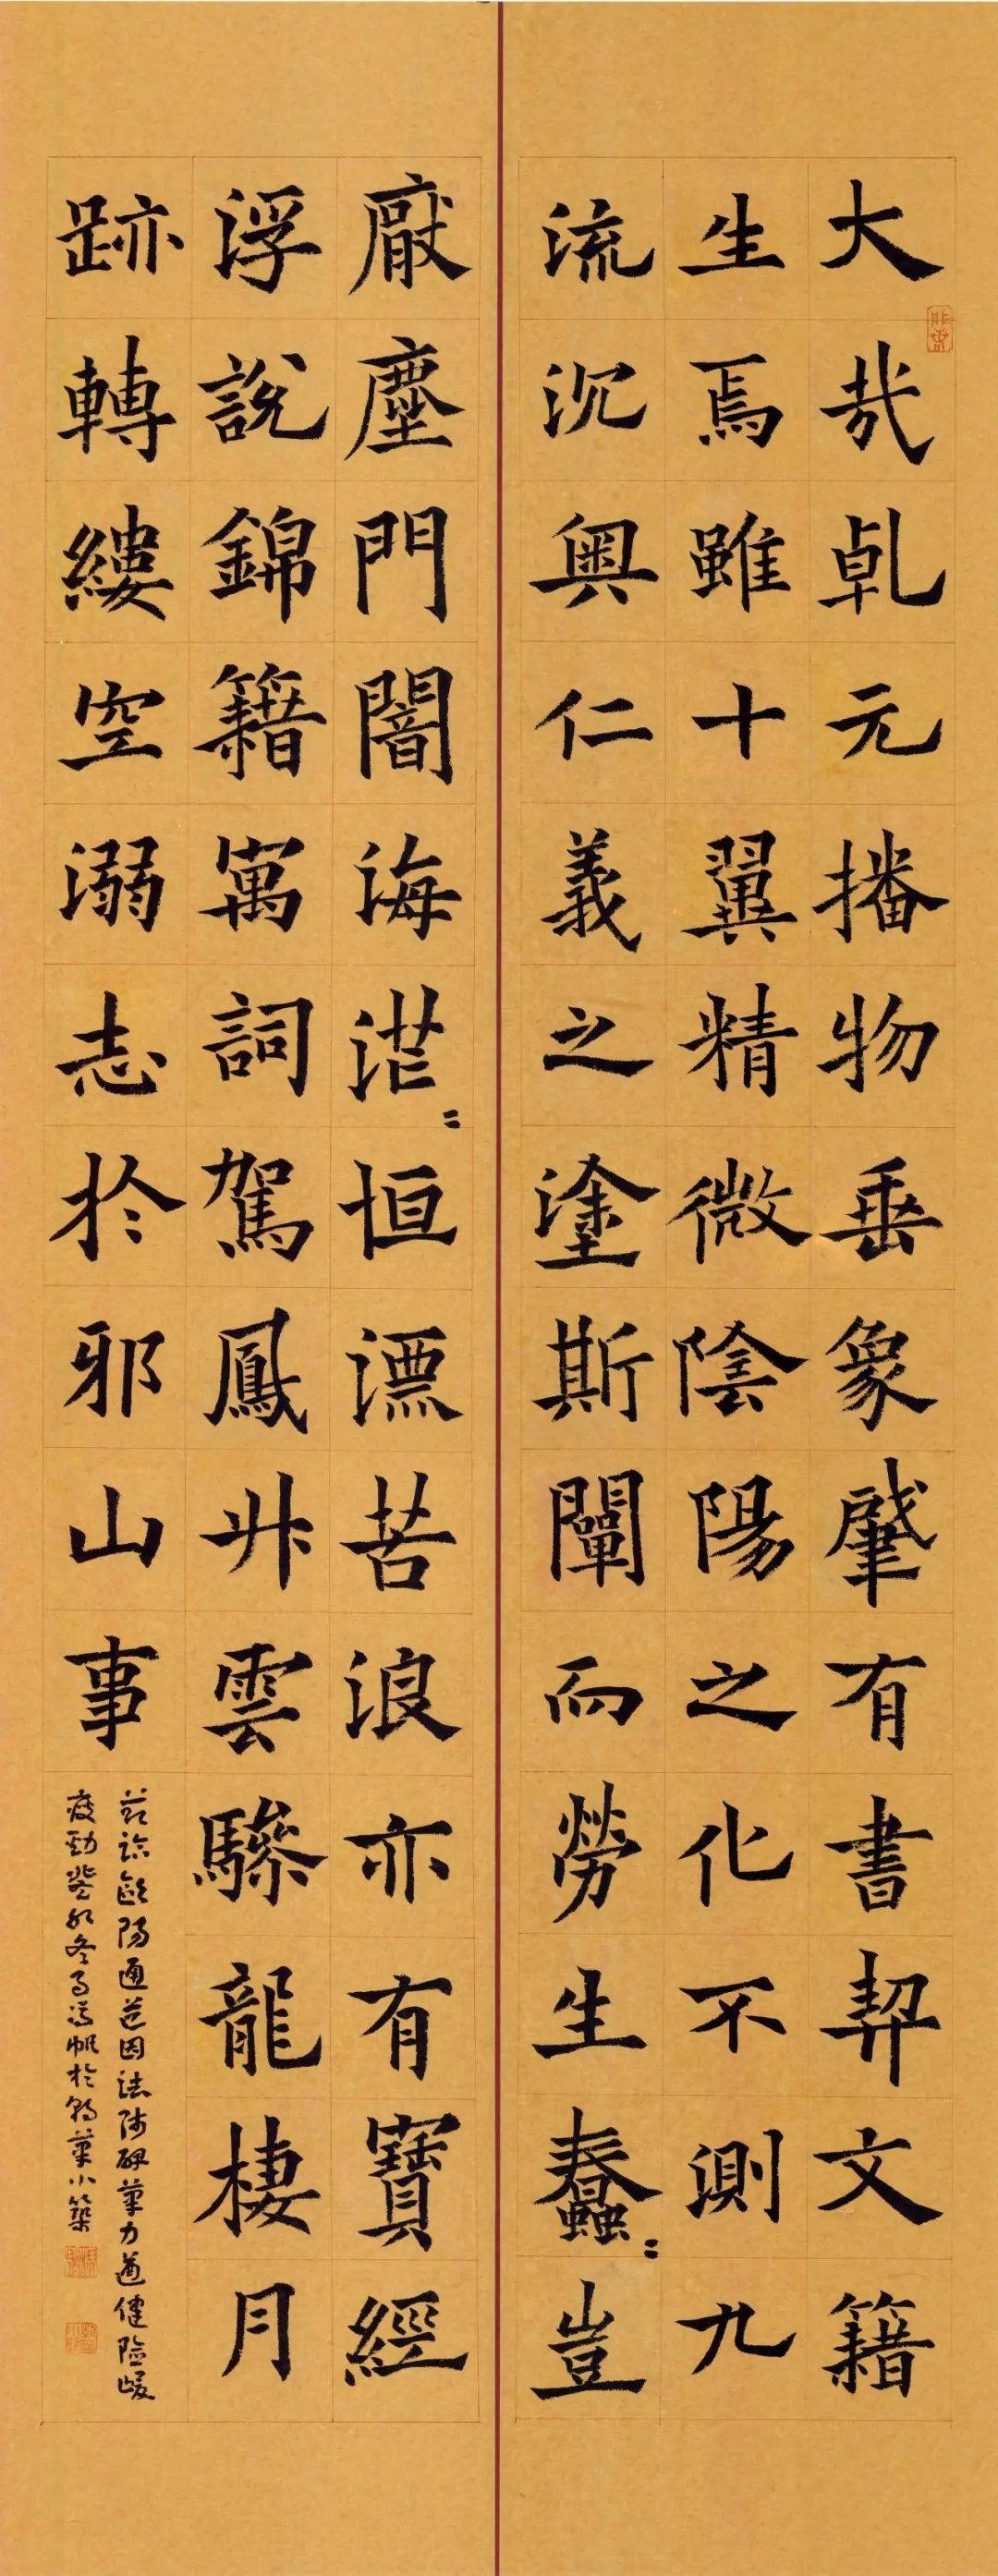 大哉乹元播物垂象肈有書契文籍
生焉雖十翼精微陰陽之化不測九
流沉奥仁義之塗斯闡而勞生蠢〻豈
厭塵門闇海茫〻恒漂苦浪亦有寳經
浮說錦籍寓詞駕鳳昇雲驂龍棲月
跡轉縷空溺志於邪山事
歐陽通道因法師碑筆力遒健險峻
疫勁冬馮帆於小築